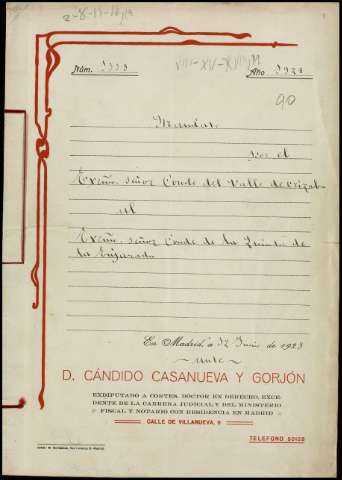 Núm. 1338
Año 1923
90
Mandato
por el
Excmo. Señor Conde del Valle de Orizaba
al
Excmo. Señor Conde de la Quinta de
la Enjarada
En Madrid, a 12 Junio de 1923
ante
D. CÁNDIDO CASANUEVA Y GORJÓN
EXDIPUTADO A CORTES, DOCTOR EN DERECHO, EXCE-
DENTE DE LA CARRERA JUDICIAL Y DEL MINISTERIO
FISCAL Y NOTARIO CON RESIDENCIA EN MADRID
CALLE DE VILLANUEVA, 5
TELEFONO 50125